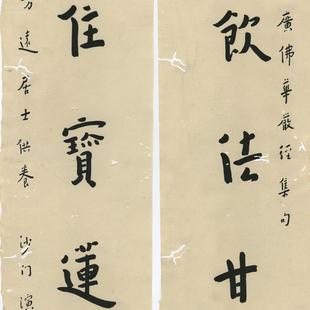 廣佛華嚴經集句
飲法甘
住寶蓮
方遠居士供養 沙门演